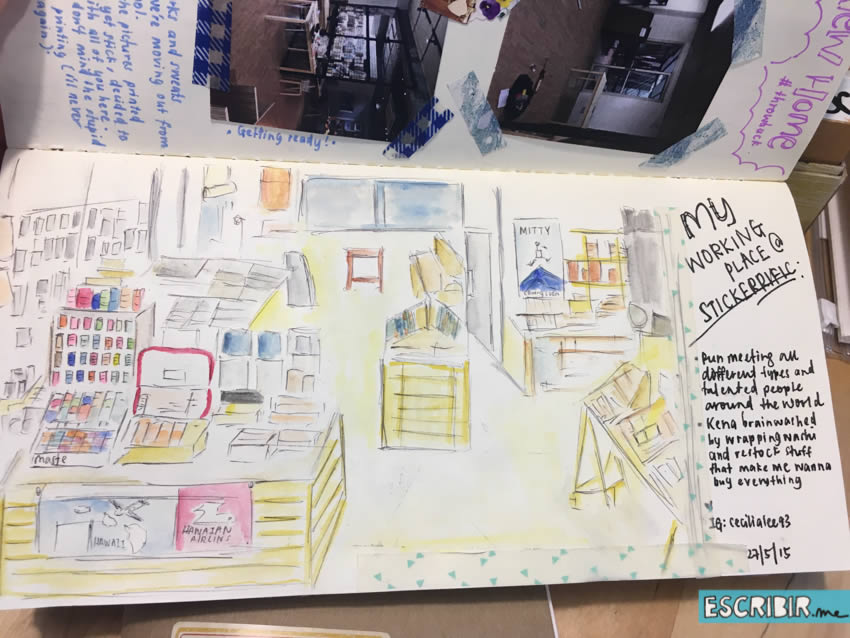 NEW Home
#throwback
rks and sweats
we're moving out from
ool.
the pictures printed
get stick, decided to
with all of you here.
don't mind the stupid
printing (I'll never
again)
• Getting ready! •
MITTY
My
WORKING
PLACE @
STICKERRIFIC.
• Fun meeting all
different types and
talented people
around the world
• Kena brainwashed
by wrapping washi
and restock stuff
that make me wanna
buy everything
IG: cecilialee93
27/5/15
maste
HAWAII
HAWAIIAN
AIRLINS
ESCRIBIR.me